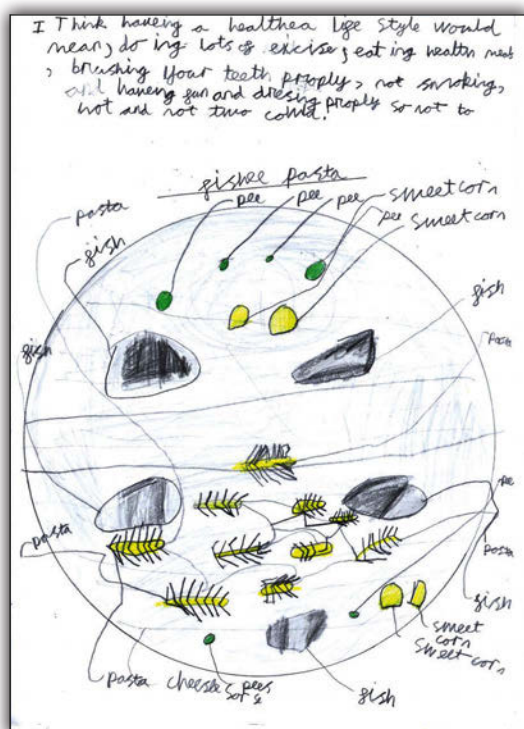 I Think haveing a healthea life style would
mean, do ing lots of excise, eat ing health meals
, brushing your teeth proply, not smoking,
and haveing fun and dresing proply so not to
hot and not two could.
fishee pasta
pasta
pee
pee
pee
sweetcorn
pee
sweetcorn
fish
fish
pasta
fish
pasta
pee
pasta
fish
sweet
corn
sweetcorn
pasta
cheese
pees
fish